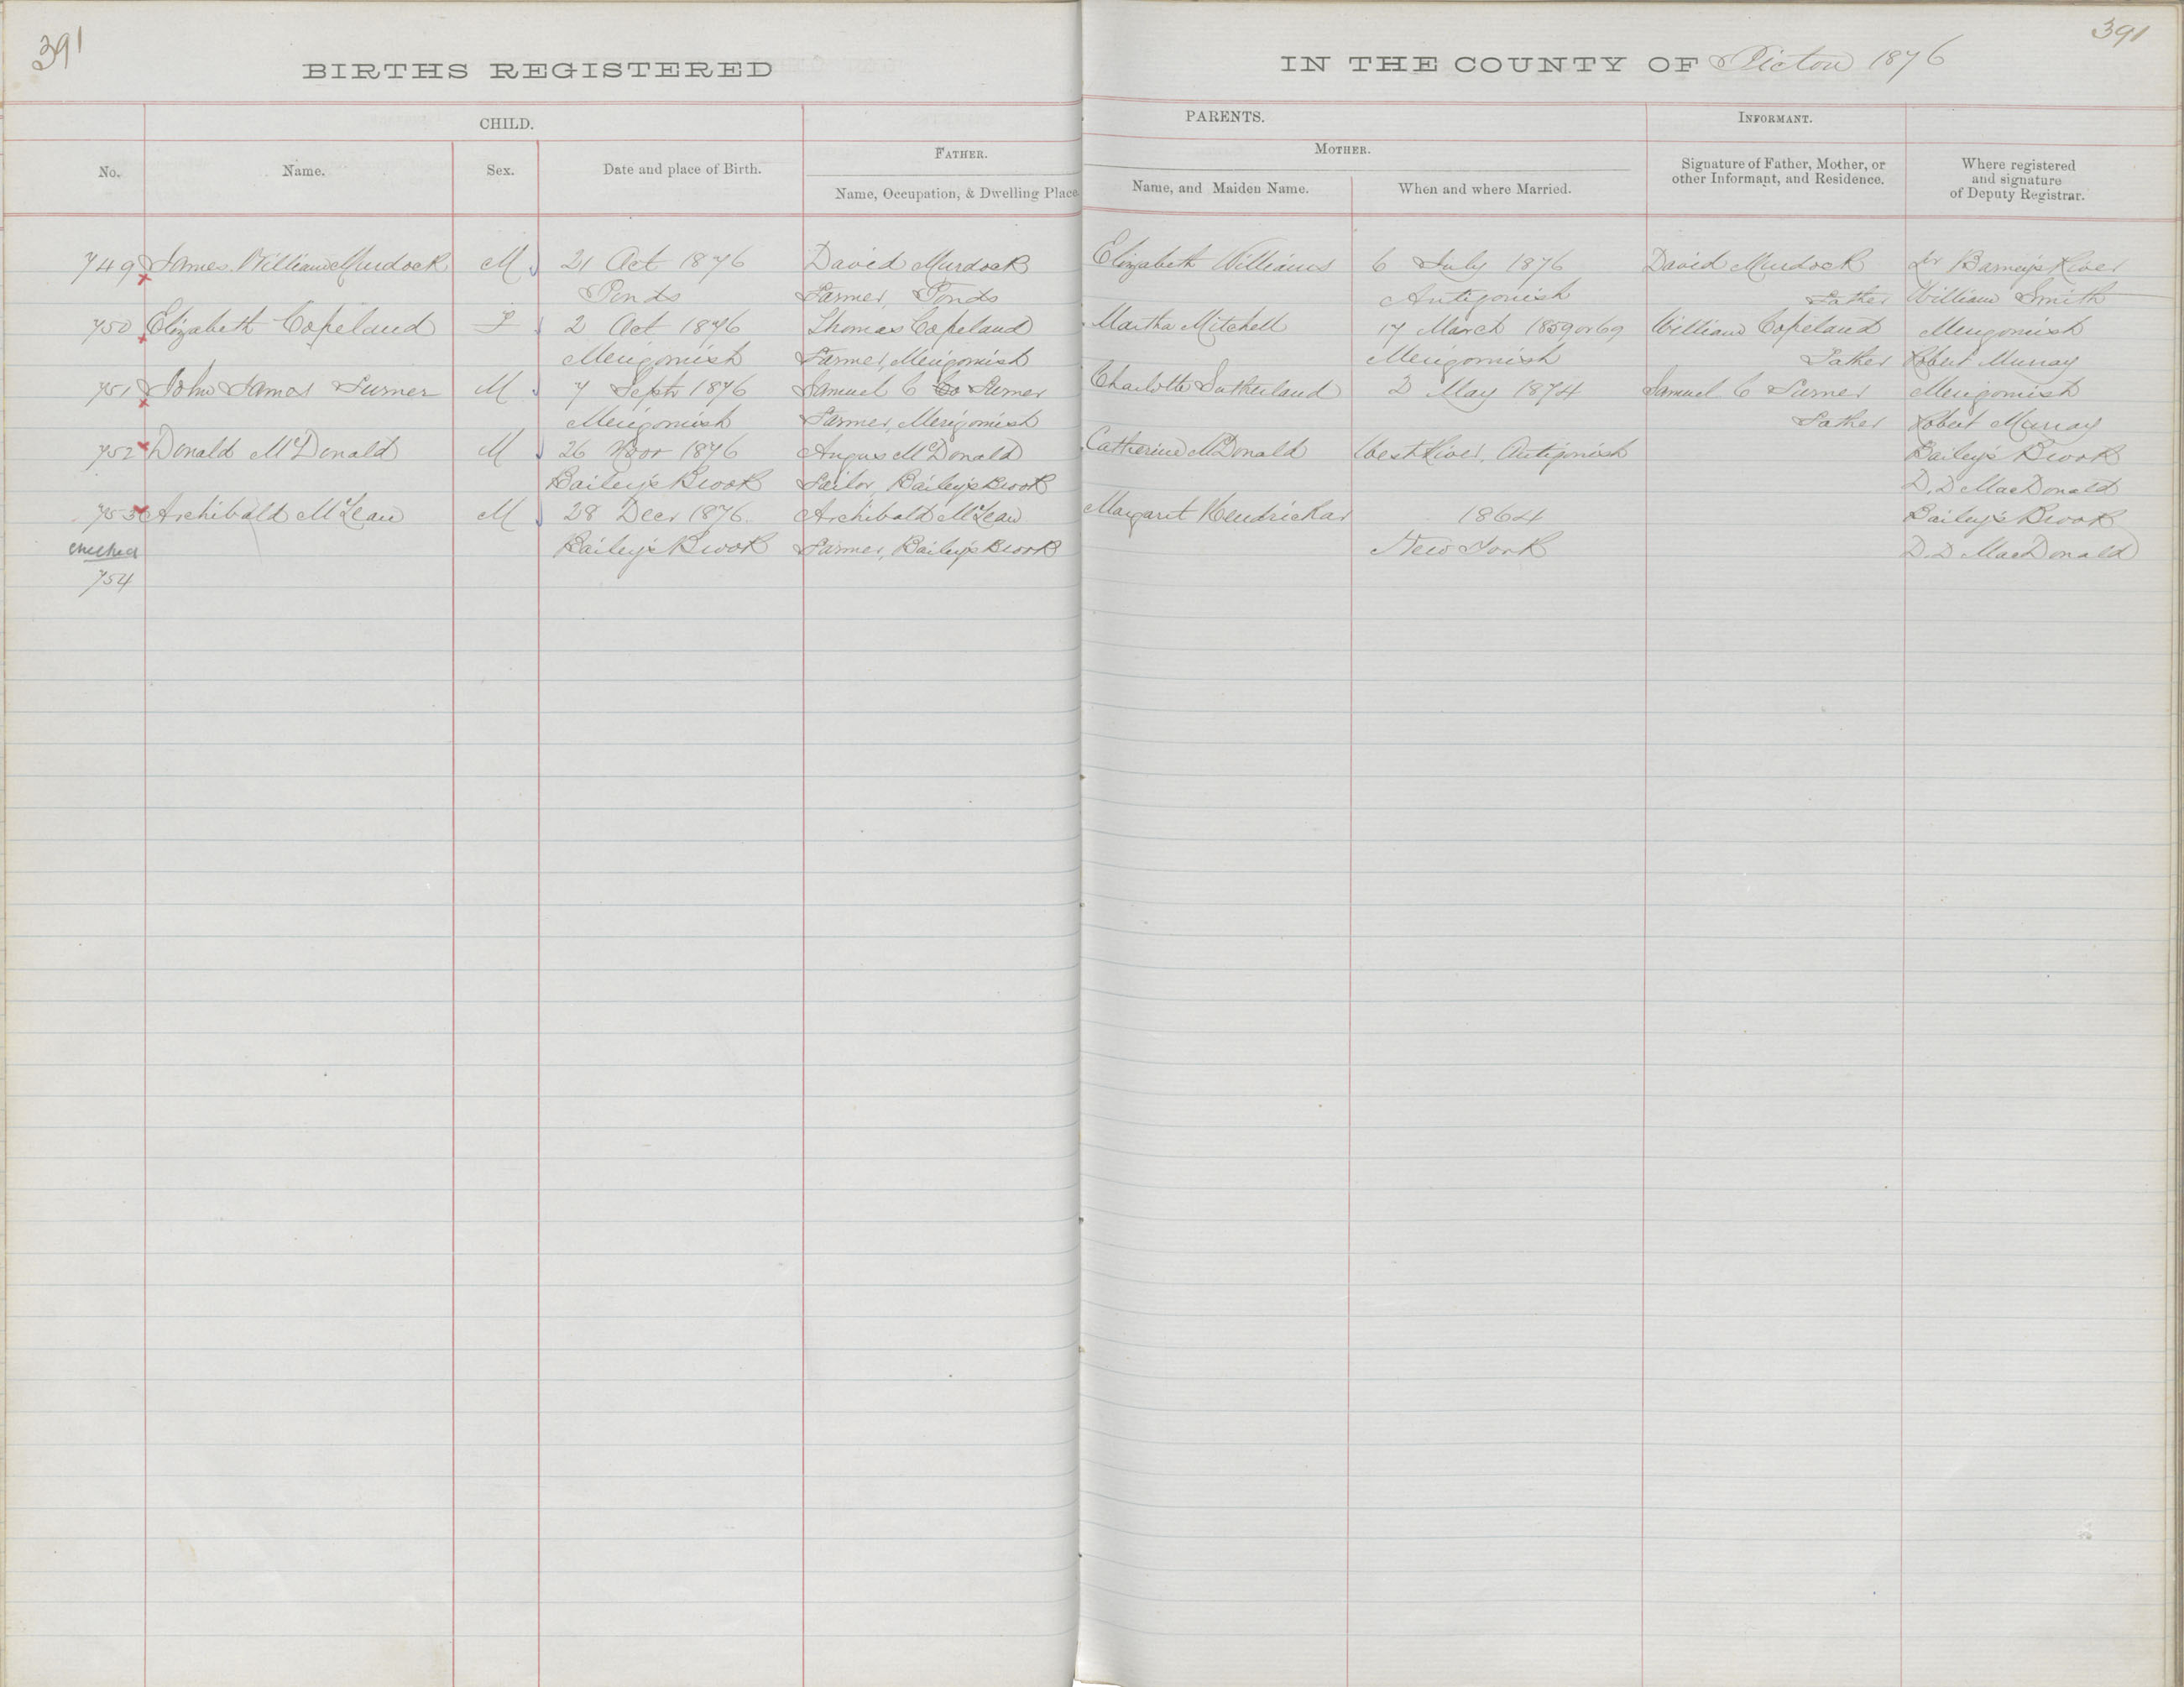 391
391
BIRTHS REGISTERED IN THE COUNTY OF Pictou 1876
CHILD. PARENTS. INFORMANT.
No. Name. Sex. Date and place of Birth. FATHER. Name, Occupation, & Dwelling Place. MOTHER. Name, and Maiden Name. When and where Married. Signature of Father, Mother, or other Informant, and Residence. Where registered and signature of Deputy Registrar.
749 James William Murdock M 21 Oct 1876 David Murdock Elizabeth Williams 6 July 1876 David Murdock Lr Barney's River
Ponds Farmer, Ponds Antigonish Father William Smith
750 Elizabeth Copeland F 2 Oct 1876 Thomas Copeland Martha Mitchell 17 March 1859 or 69 William Copeland Merigomish
Merigomish Farmer, Merigomish Merigomish Father Robert Murray
751 John James Turner M 7 Septr 1876 Samuel C Co Turner Charlotte Sutherland 2 May 1874 Samuel C Turner Merigomish
Merigomish Farmer, Merigomish Father Robert Murray
752 Donald McDonald M 26 Novr 1876 Angus McDonald Catherine McDonald West River, Antigonish Bailey's Brook
Bailey's Brook Tailor, Bailey's Brook D. D MacDonald
753 Archibald McLean M 28 Decr 1876. Archibald McLean Margaret Hendrickar 1864 Bailey's Brook
checked Bailey's Brook Farmer, Bailey's Brook New York D. D MacDonald
754